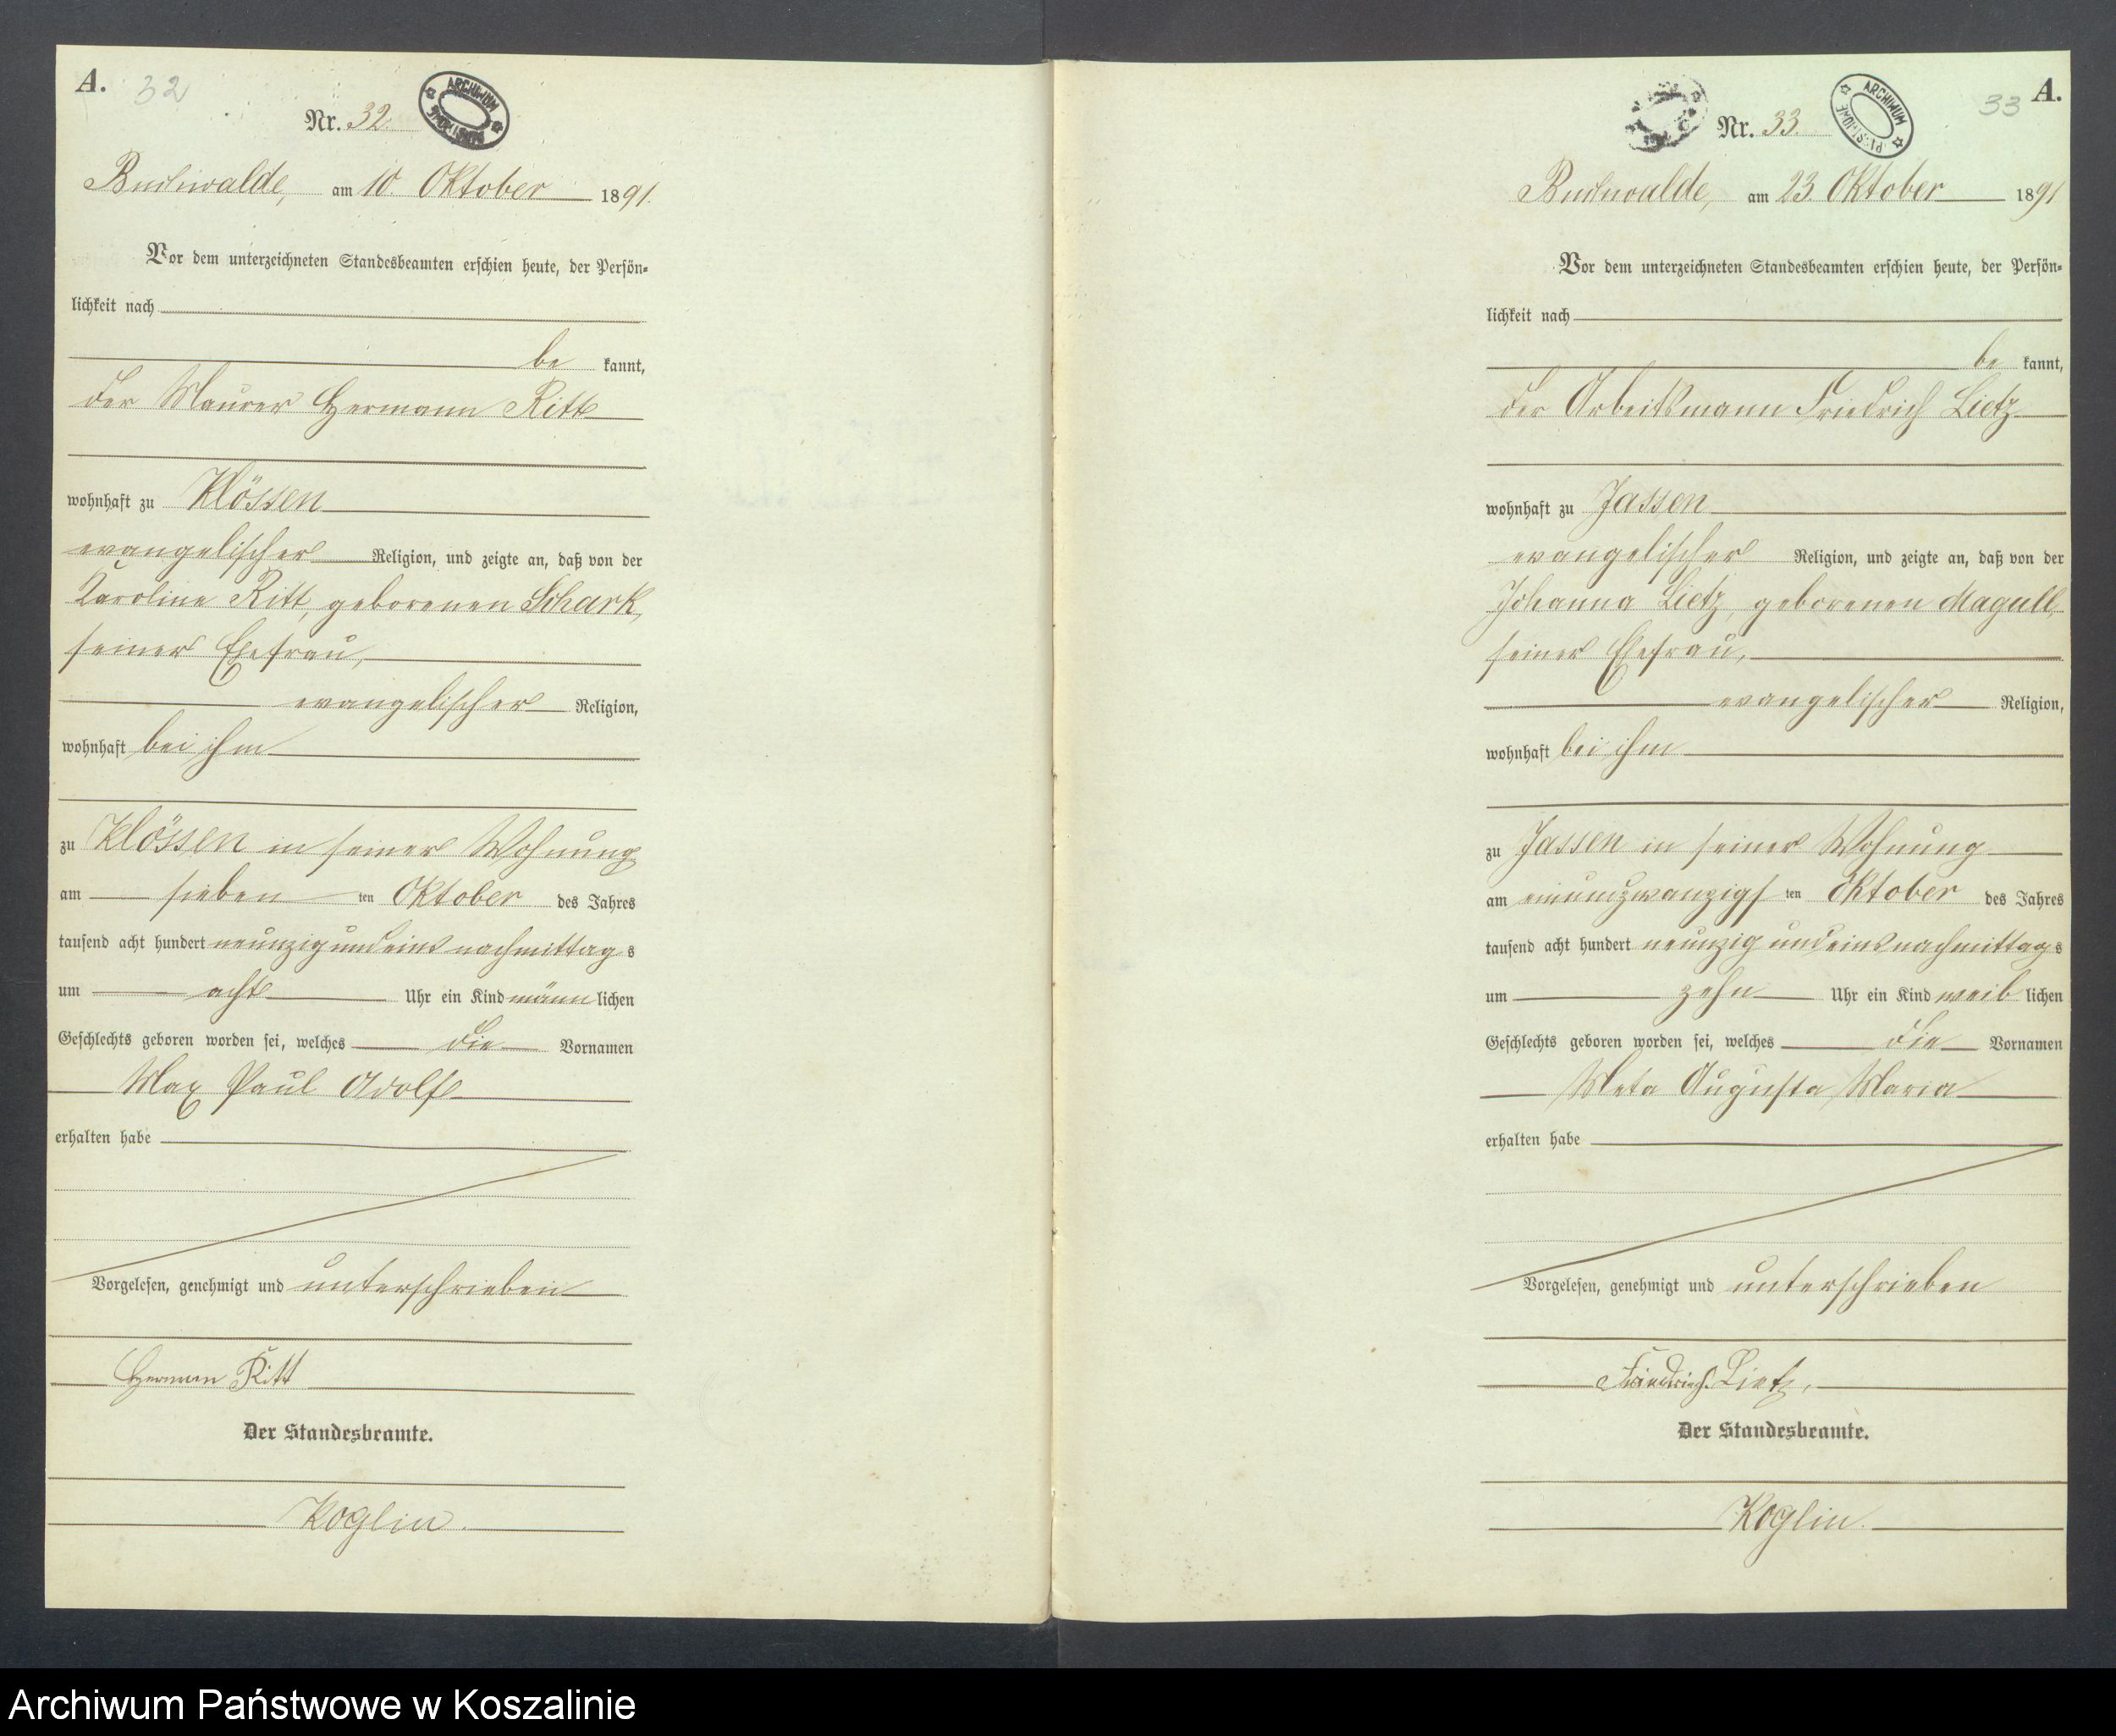 A.
32
Nr. 32.
ARCHIWUM PAŃSTWOWE
Buchwalde, am 10. Oktober 1891.
Vor dem unterzeichneten Standesbeamten erschien heute, der Persön-
lichkeit nach
be kannt,
der Maurer Hermann Ritt
wohnhaft zu Klössen
evangelischer Religion, und zeigte an, daß von der
Karoline Ritt, geborenen Schark,
seiner Ehefrau,
evangelischer Religion,
wohnhaft bei ihm
zu Klössen in seiner Wohnung
am sieben ten Oktober des Jahres
tausend acht hundert neunzig und eins nachmittag s
um acht Uhr ein Kind männ lichen
Geschlechts geboren worden sei, welches die Vornamen
Max Paul Adolf
erhalten habe
Vorgelesen, genehmigt und unterschrieben
Hermann Ritt
Der Standesbeamte.
Koglin.
A.
33
Nr. 33.
ARCHIWUM PAŃSTWOWE
Buchwalde, am 23. Oktober 1891
Vor dem unterzeichneten Standesbeamten erschien heute, der Persön-
lichkeit nach
be kannt,
der Arbeitsmann Friedrich Lietz
wohnhaft zu Jassen
evangelischer Religion, und zeigte an, daß von der
Johanna Lietz, geborenen Magull,
seiner Ehefrau,
evangelischer Religion,
wohnhaft bei ihm
zu Jassen in seiner Wohnung
am einundzwanzigs ten Oktober des Jahres
tausend acht hundert neunzig und eins nachmittag s
um zehn Uhr ein Kind weib lichen
Geschlechts geboren worden sei, welches die Vornamen
Meta Augusta Maria
erhalten habe
Vorgelesen, genehmigt und unterschrieben
Friedrich Lietz.
Der Standesbeamte.
Koglin.
Archiwum Państwowe w Koszalinie